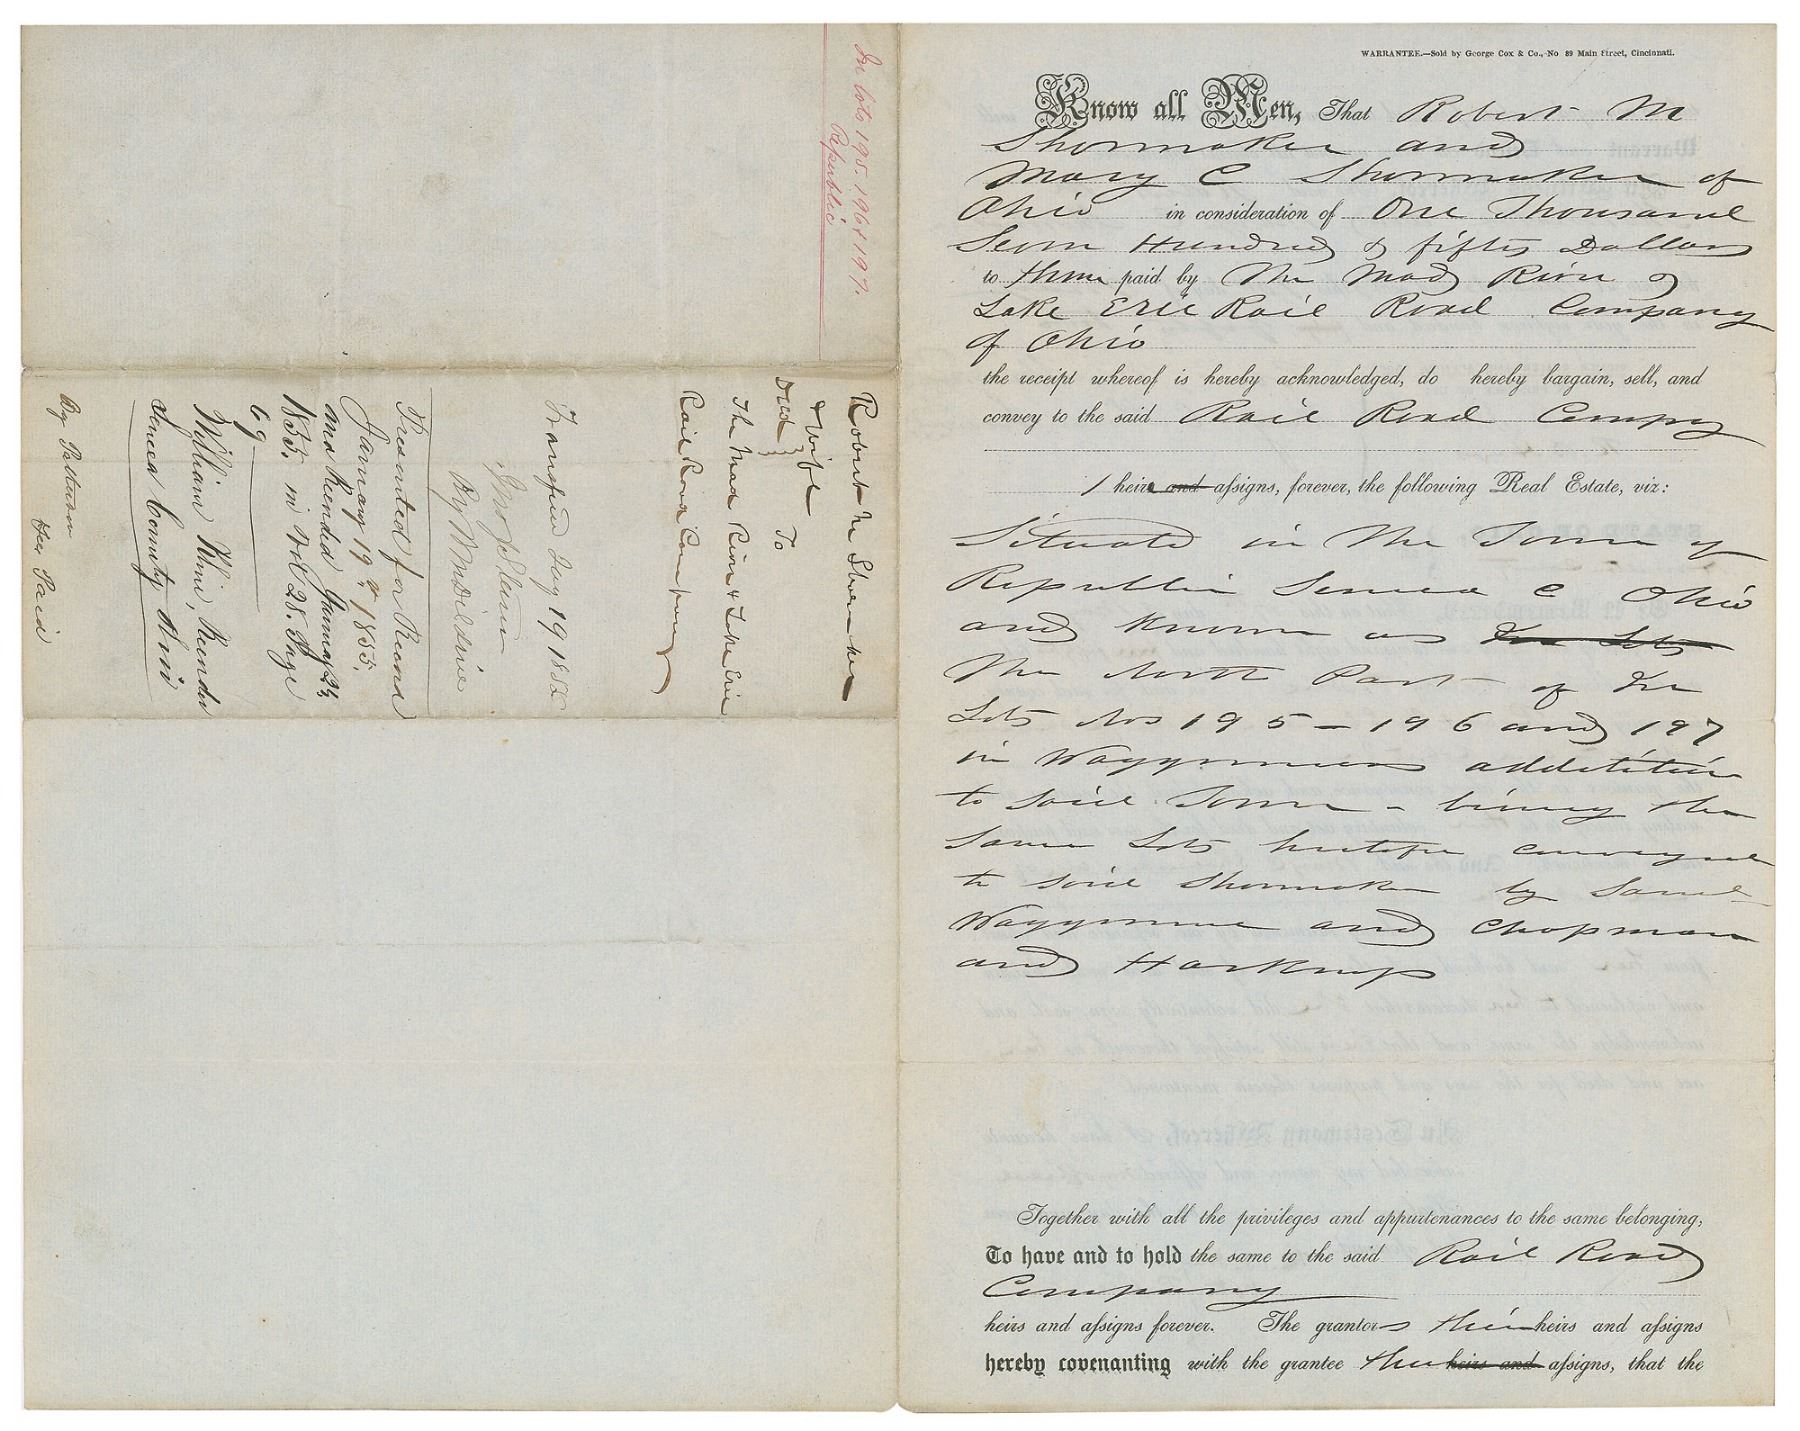 In Lots 195. 196 & 197.
Republic
Robert M Shoemaker
& Wife
To
Deed
The Mad River & Lake Erie
Rail Road Company
Transfered Jany 19 1855
By
Presented for Record
January 19th 1855.
and Recorded January 24
1855. in Vol 28. Page
69
William Kline, Recorder
Seneca County Ohio
By Patterson
Fee Paid
WARRANTEE.—Sold by George Cox & Co., No 89 Main Street, Cincinnati.
Know all Men, That Robert M
Shoemaker and
Mary C Shoemaker of
Ohio in consideration of One Thousand
Seven Hundred & fifty Dollars
to them paid by The Mad River &
Lake Erie Rail Road Company
of Ohio
the receipt whereof is hereby acknowledged, do hereby bargain, sell, and
convey to the said Rail Road Compy
heirs and assigns, forever, the following Real Estate, viz:
Situate in the Town of
Republic Seneca C Ohio
and known as In Lots
The North Part of In
Lots Nos 195 – 196 and 197
in Waggoners addition
to said Town – being the
same Lots heretofore conveyed
to said Shoemaker by Saml
Waggoner and Chapman
and
Together with all the privileges and appurtenances to the same belonging,
To have and to hold the same to the said Rail Road
Company
heirs and assigns forever. The grantors their heirs and assigns
hereby covenanting with the grantee their heirs and assigns, that the